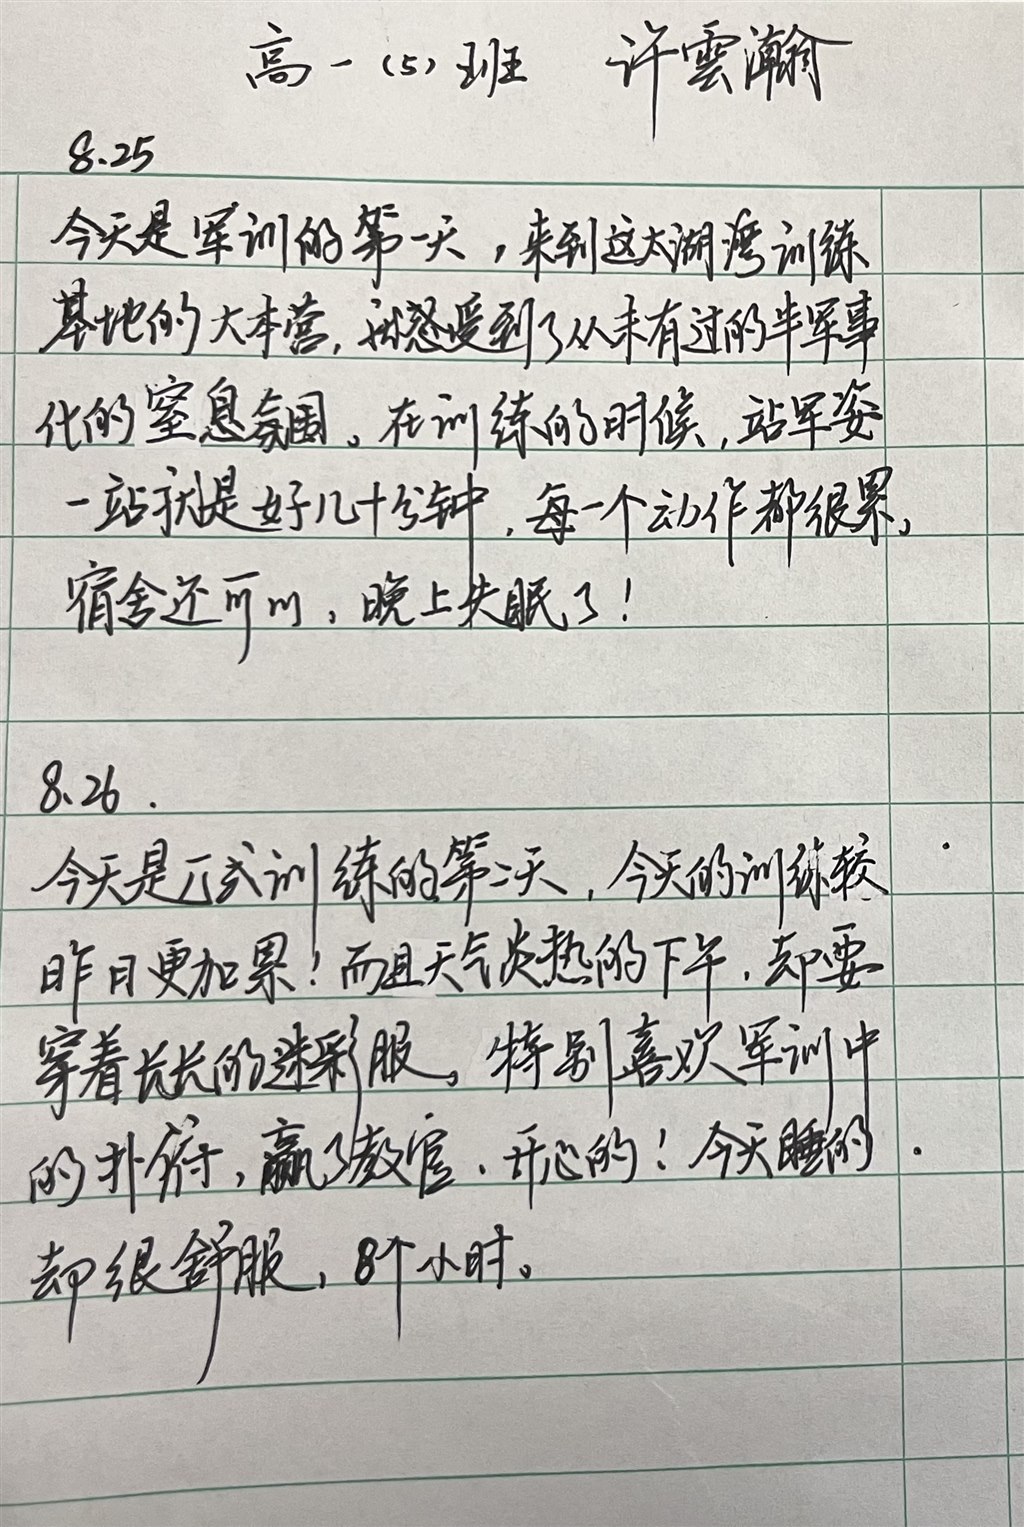 高一(5)班 许雲瀚
8.25
今天是军训的第一天，来到这太湖湾训练
基地的大本营，我感受到了从未有过的半军事
化的窒息氛围。在训练的时候，站军姿
一站就是好几十分钟，每一个动作都很累。
宿舍还可以，晚上失眠了！
8.26.
今天是正式训练的第二天，今天的训练较
昨日更加累！而且天气炎热的下午，却要
穿着长长的迷彩服。特别喜欢军训中
的扑，赢了教官、开心的！今天睡的
却很舒服，8个小时。